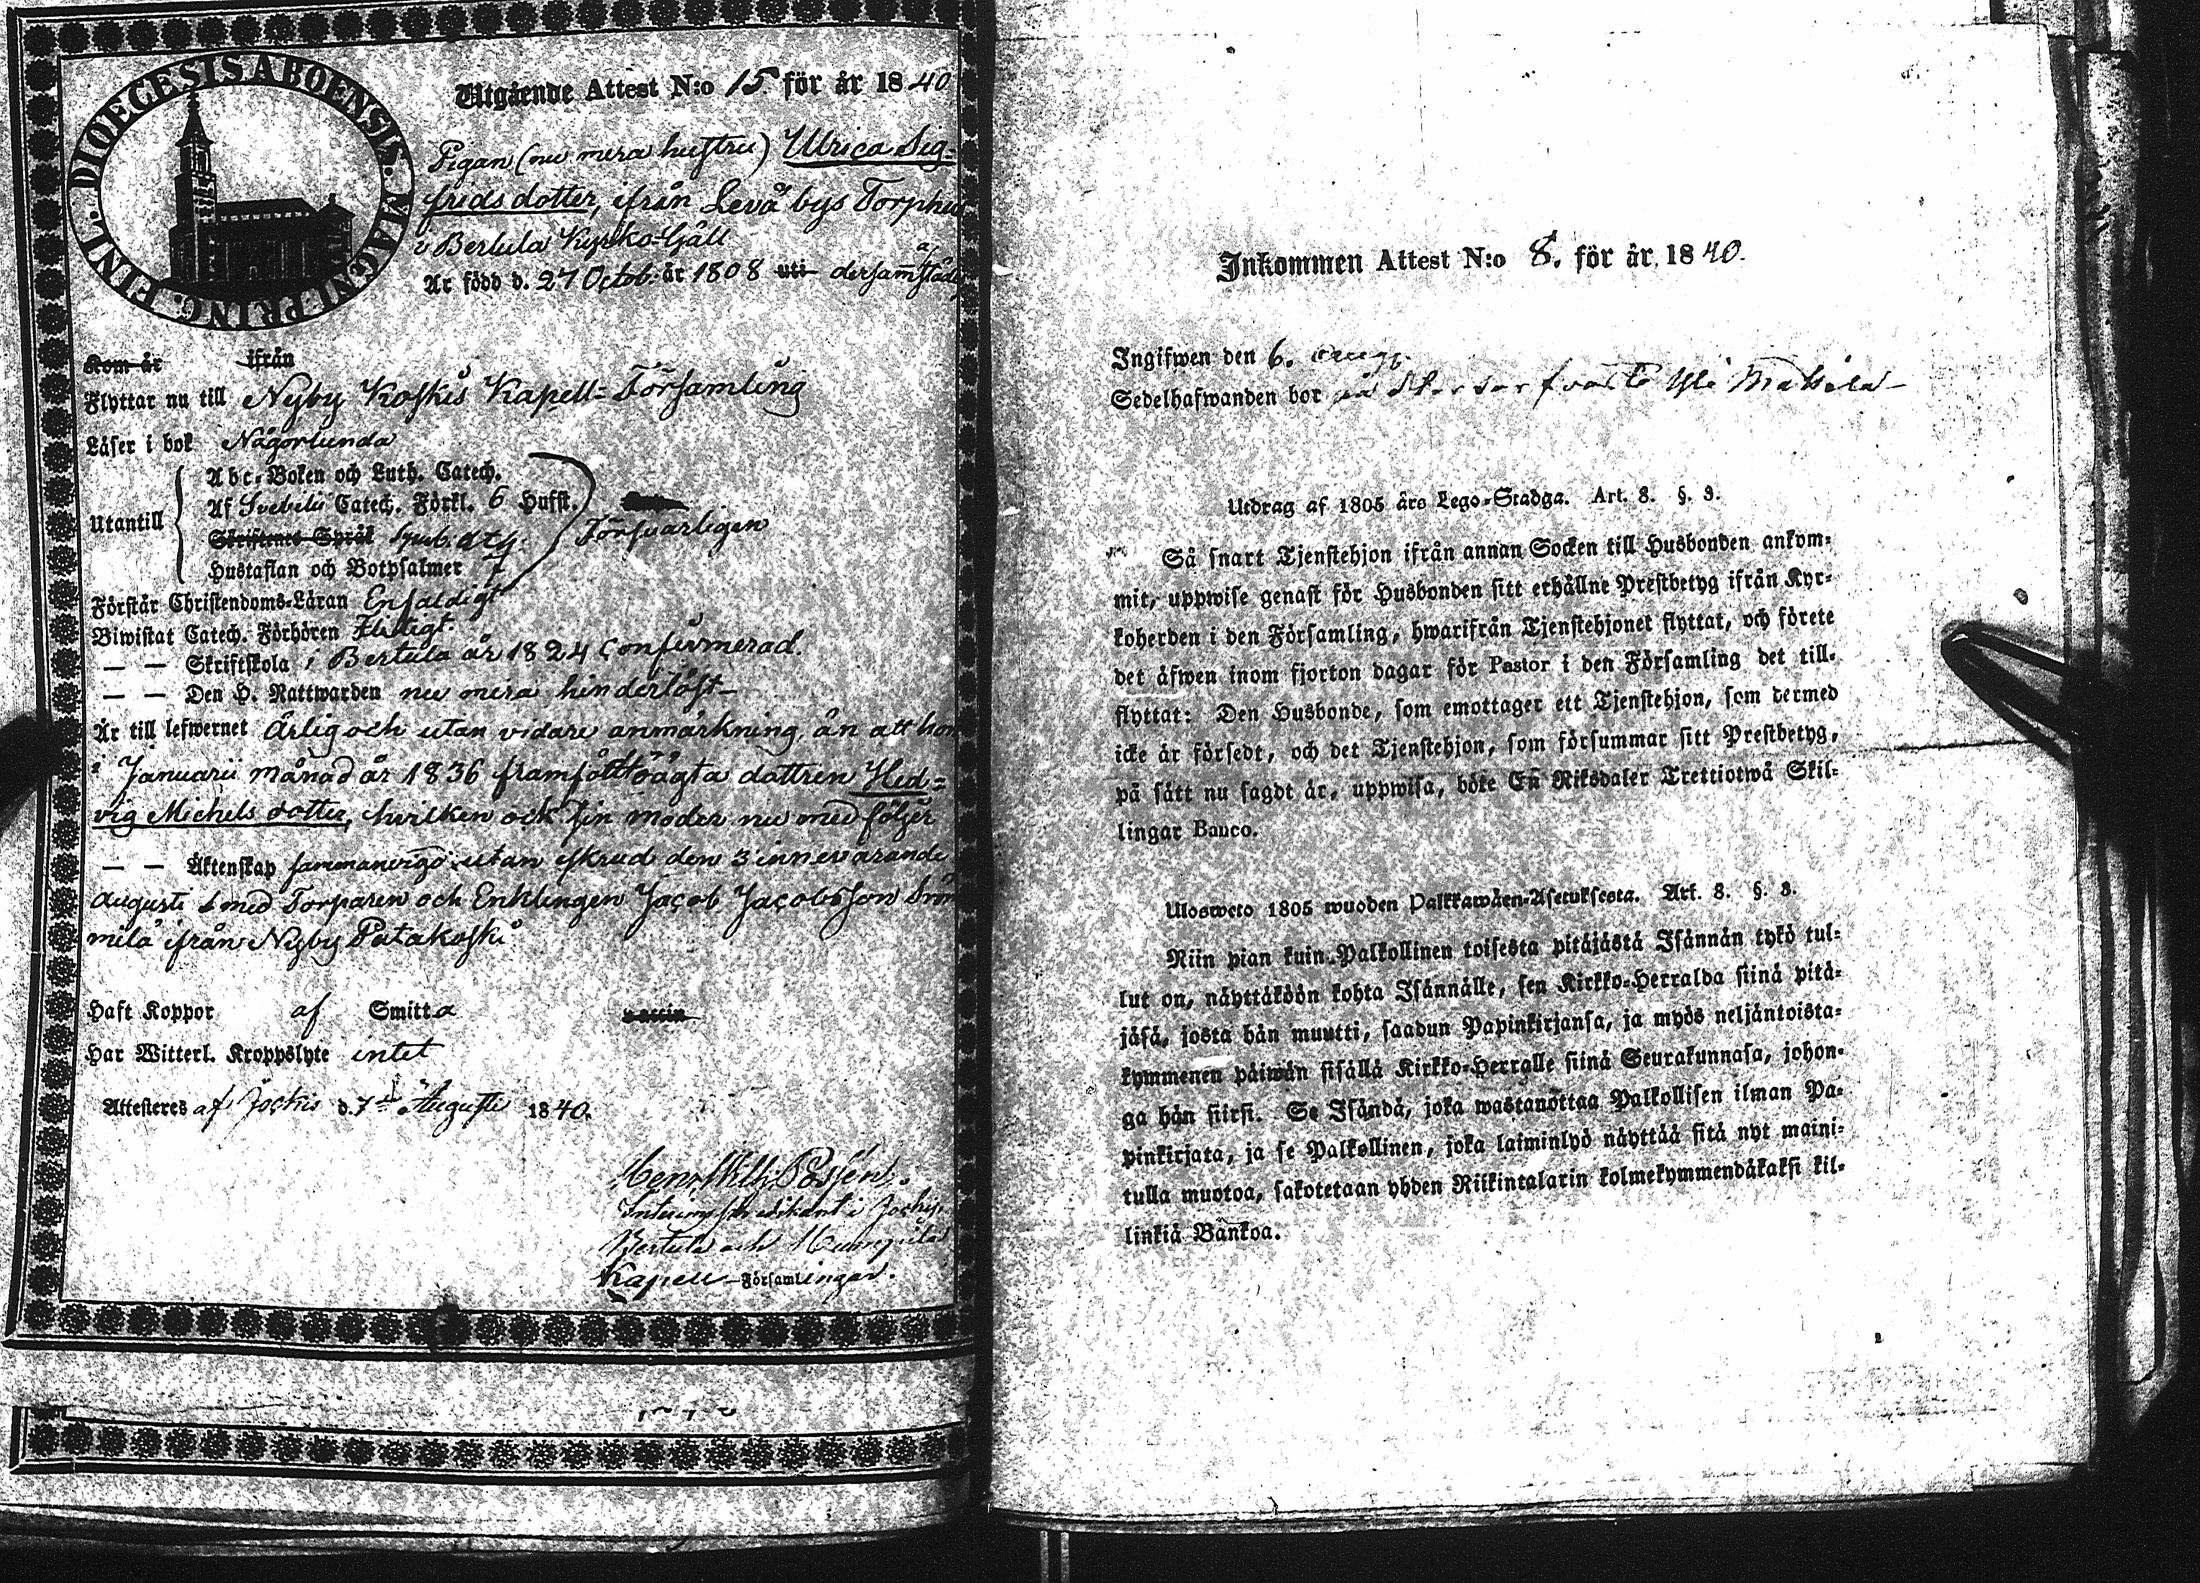 DIOECESIS ABOENSIS. MAGNI PRINC. FINL.
Utgående Attest N:o 15 för år 1840
Pigan (nu mera hustru) Ulrica Sig=
frids dotter, ifrån Levä bys Torphu
i Bertula Kyrko=Gäll
Är född d. 27 Octob: år 1808 uti dersammstädes
Kom år ifrån
Flyttar nu till Nyby Koskis Kapell=Församling
Läser i bok Någorlunda
Abc-Boken och Luth. Catech.
Af Svebilii Catech. Förkl. 6 Hufst.
Utantill
Skriftenes Språk Symb. Försvarligen
Hustaflan och Botpsalmer 7
Förstår Christendoms-Läran Enfaldigt
Biwistat Catech. Förhören Flitigt.
— — Skriftskola i Bertula år 1824 Confirmerad.
— — Den H. Nattwarden nu mera hinderlöst
Är till lefwernet Ärlig och utan vidare anmärkning, än att hon
i Januarii månad år 1836 framfödt oägta dottren Hed=
vig Michels dotter, hvilken ock sin moder nu medföljer
— — Äktenskap sammanvigd utan skrud den 3 innevarande
Augusti med Torparen och Enklingen Jacob Jacobsson
milä ifrån Nyby Patakoski
Haft Koppor af Smitta
Har Witterl. Kroppslyte intet
Attesteres af Jockis d. Augusti 1840.
i Jockis,
Bertula och Humppila
Kapell-Församlingar.
Inkommen Attest N:o 8. för år 1840.
Ingifwen den 6. Aug.
Sedelhafwanden bor på
Utdrag af 1805 års Lego-Stadga. Art. 8. §. 3.
Så snart Tjenstehjon ifrån annan Socken till Husbonden ankom=
mit, uppwise genast för Husbonden sitt erhållne Prestbetyg ifrån Kyr=
koherden i den Församling, hwarifrån Tjenstehjonet flyttat, och förete
det äfwen inom fjorton dagar för Pastor i den Församling det till=
flyttat: Den Husbonde, som emottager ett Tjenstehjon, som dermed
icke är försedt, och det Tjenstehjon, som försummar sitt Prestbetyg,
på sätt nu sagdt är, uppwisa, böte En Riksdaler Trettiotwå Skil=
lingar Banco.
Ulosweto 1805 wuoden Palkkawäen-Asetuksesta. Art. 8. §. 3.
Niin pian kuin Palkollinen toisesta pitäjästä Isännän tykö tul=
lut on, näyttäköön kohta Isännälle, sen Kirkko-Herralda siinä pitä=
jäsä, josta hän muutti, saadun Papinkirjansa, ja myös neljäntoista=
kymmenen päiwän sisällä Kirkko-Herralle siinä Seurakunnasa, johon=
ga hän siirsi. Se Isändä, joka wastanottaa Palkollisen ilman Pa=
pinkirjata, ja se Palkollinen, joka laiminlyö näyttää sitä nyt maini=
tulla muotoa, sakotetaan yhden Riikintalarin kolmekymmendäkaksi kil=
linkiä Bankoa.